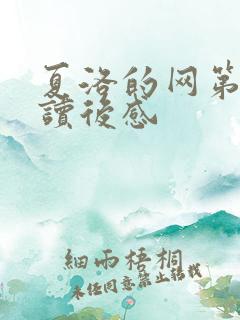 夏洛的网第
讀後感
細雨梧桐
未经同意禁止转载